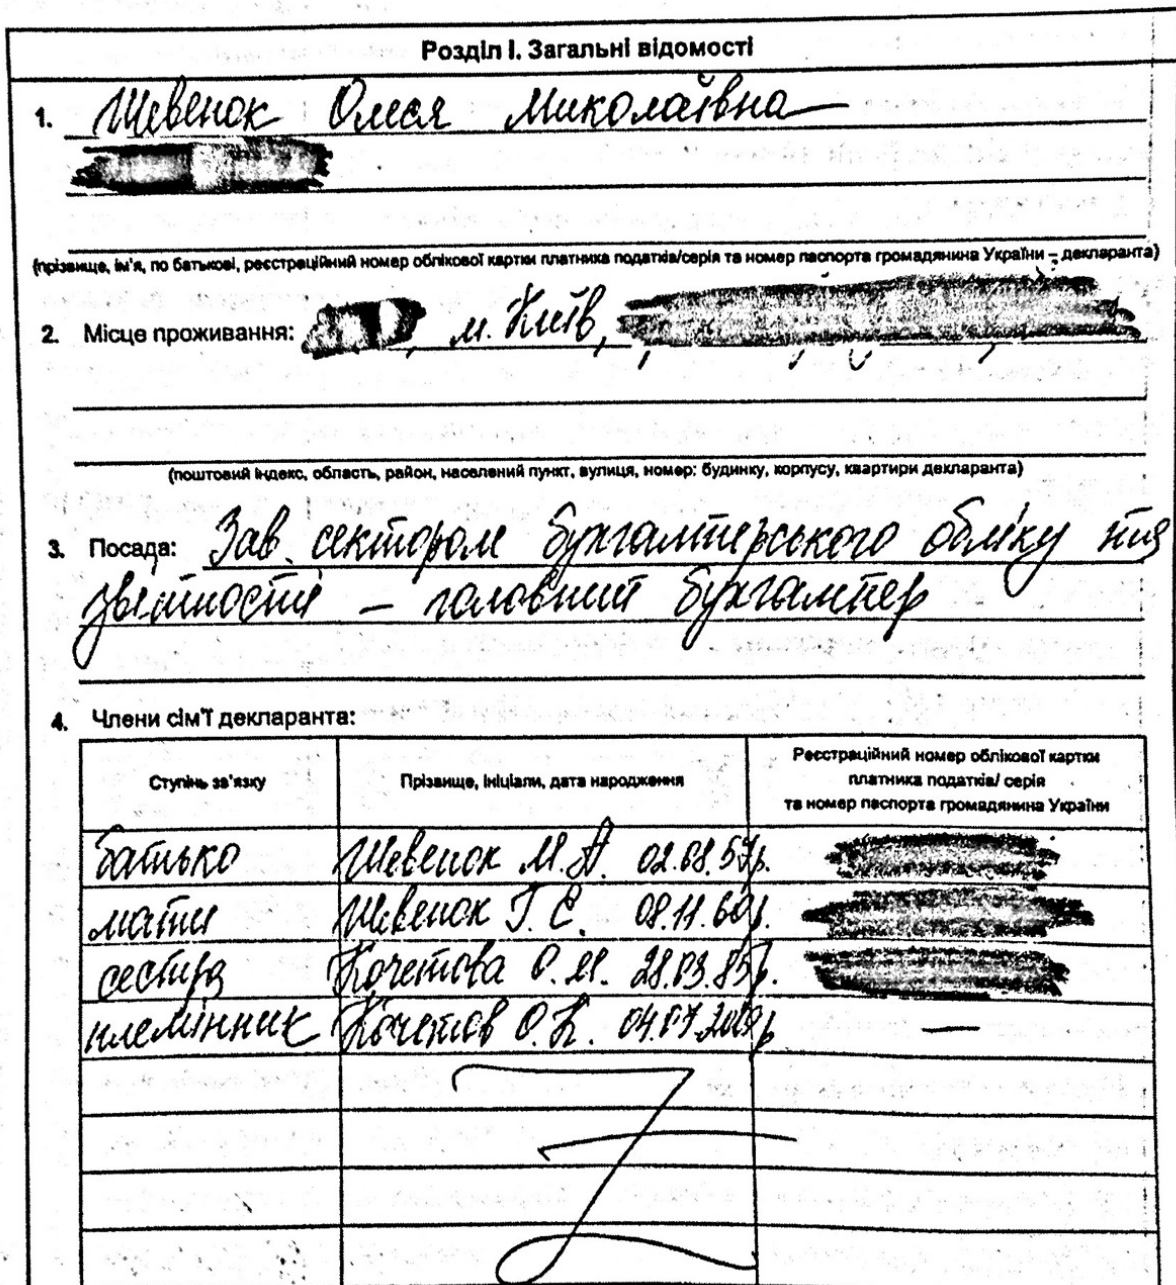 Розділ І. Загальні відомості
1. Шевенок Олеся Миколаївна
(прізвище, ім'я, по батькові, реєстраційний номер облікової картки платника податків/серія та номер паспорта громадянина України – декларанта)
2. Місце проживання: , м. Київ,
(поштовий індекс, область, район, населений пункт, вулиця, номер: будинку, корпусу, квартири декларанта)
3. Посада: Зав. сектором бухгалтерського обліку та
звітності – головний бухгалтер
4. Члени сім'ї декларанта:
Ступінь зв'язку Прізвище, ініціали, дата народження Реєстраційний номер облікової картки
платника податків/ серія
та номер паспорта громадянина України
батько Шевенок М.А. 02.08.57р.
мати Шевенок Г. Є. 08.11.60р.
сестра Кочетова О.М. 28.03.85р.
племінник Кочетов О.К. 04.07. —